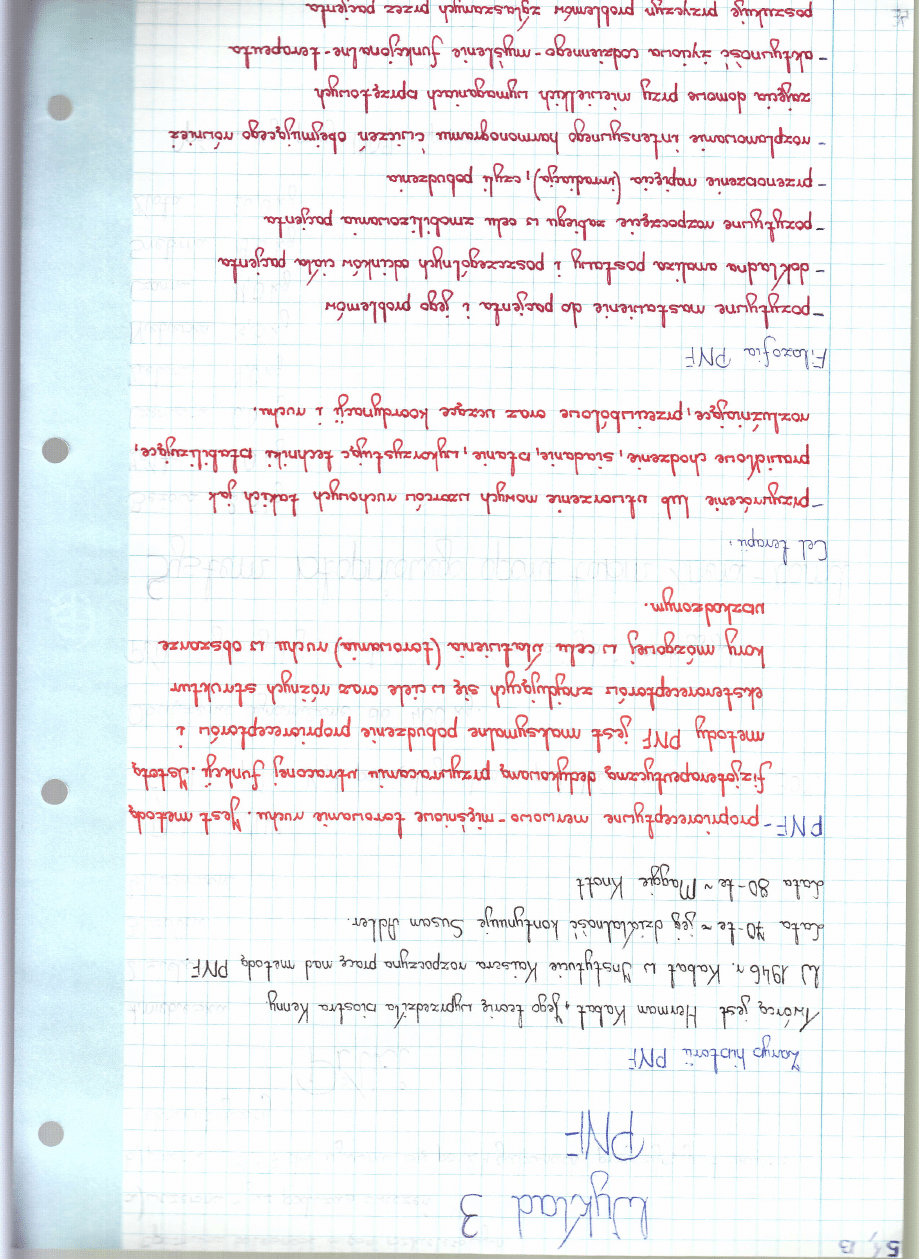 Wykład 3
PNF
Zarys historii PNF
Twórcą jest Herman Kabat, jego teorię wyprzedziła siostra Kenny.
W 1946 r. Kabat w Instytucie Kaisera rozpoczyna pracę nad metodą PNF.
Lata 70-te ~ jej działalność kontynuuje Susan Adler.
Lata 80-te ~ Maggie Knott
PNF - proprioreceptywne nerwowo-mięśniowe torowanie ruchu. Jest metodą
fizjoterapeutyczną dedykowaną przywracaniu utraconej funkcji. Istotą
metody PNF jest maksymalne pobudzenie proprioreceptorów i
eksteroreceptorów znajdujących się w ciele oraz różnych struktur
kory mózgowej w celu ułatwienia (torowania) ruchu w obszarze
uszkodzonym.
Cel terapii:
- przywrócenie lub utworzenie nowych wzorców ruchowych takich jak
prawidłowe chodzenie, siadanie, stanie, wykorzystując techniki stabilizujące,
rozluźniające, przeciwbólowe oraz uczące koordynacji i ruchu.
Filozofia PNF
- pozytywne nastawienie do pacjenta i jego problemów
- dokładna analiza postawy i poszczególnych odcinków ciała pacjenta
- pozytywne rozpoczęcie zabiegu w celu zmobilizowania pacjenta
- przenoszenie napięcia (irradiacja), czyli pobudzenia
- rozplanowanie intensywnego harmonogramu ćwiczeń obejmującego również
zajęcia domowe przy niewielkich wymaganiach sprzętowych
- aktywność życiowa codziennego - myślenie funkcjonalne - terapeuta
poszukuje przyczyn problemów zgłaszanych przez pacjenta